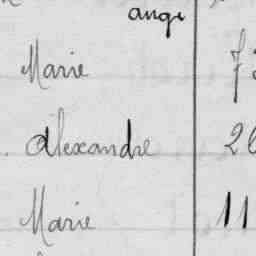 ange
Marie
Alexandre 26
Marie 11